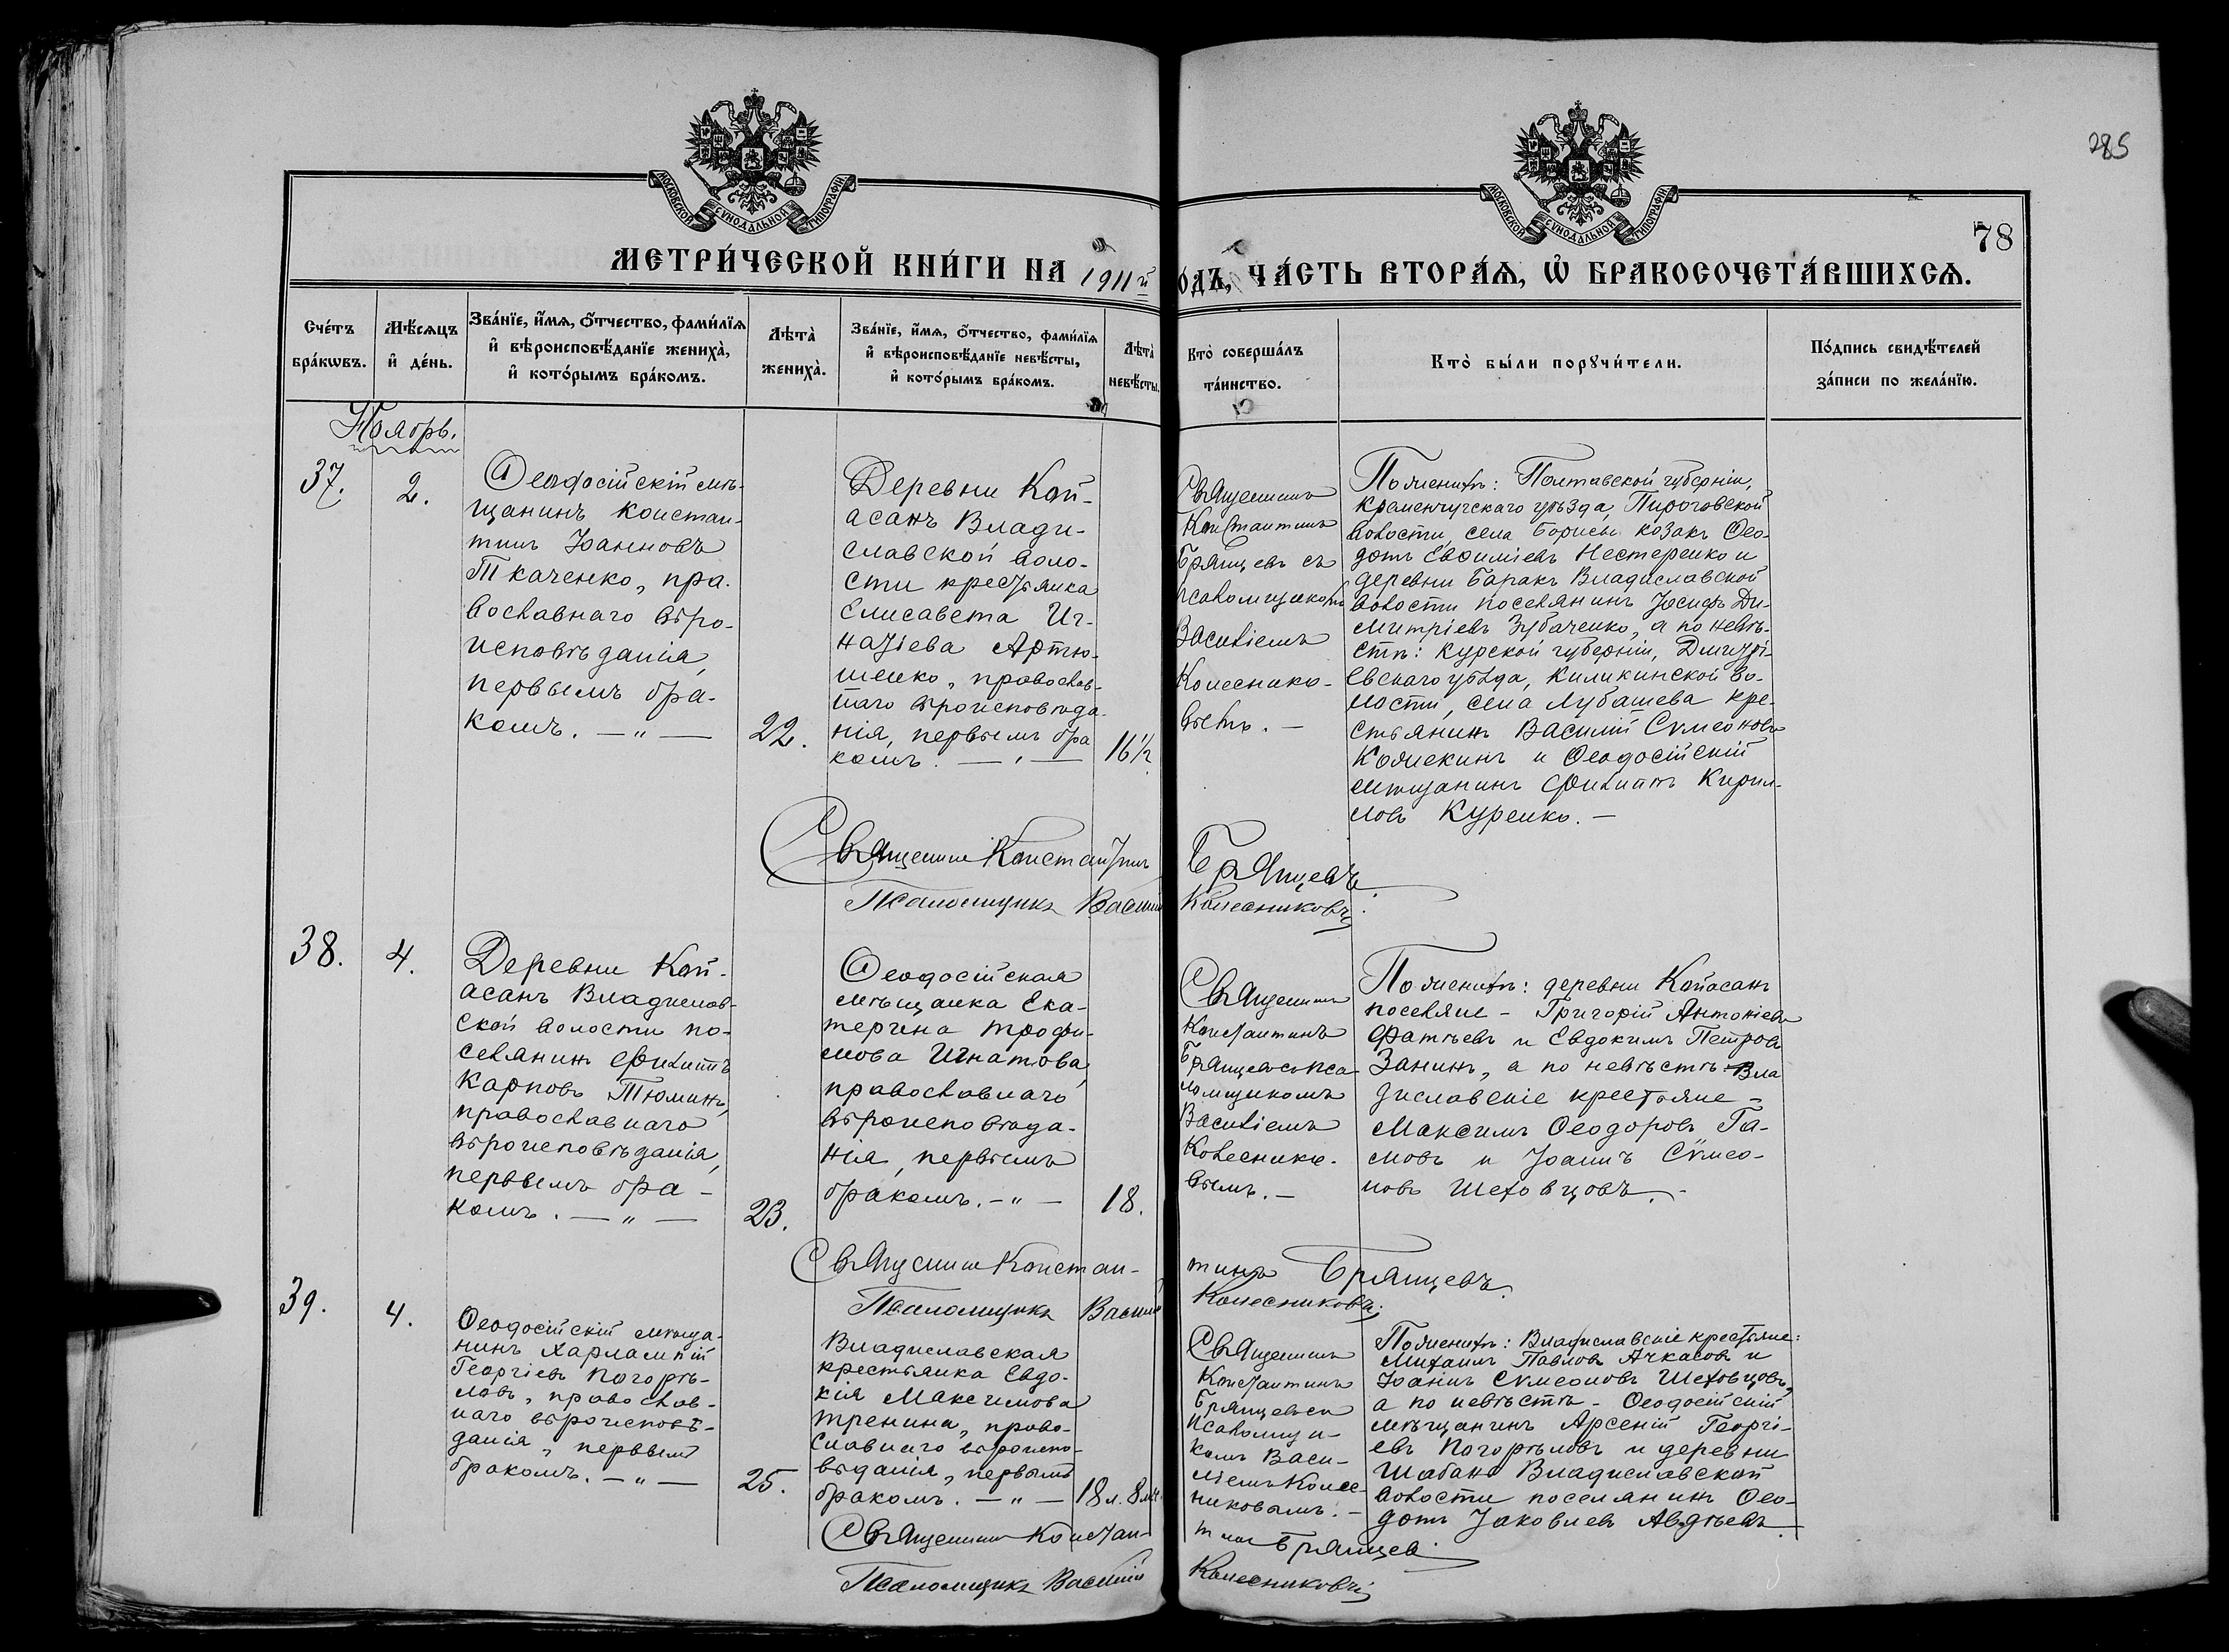 285
78
МОСКОВСКОЙ СѴНОДАЛЬНОЙ ТИПОГРАФІИ
МОСКОВСКОЙ СѴНОДАЛЬНОЙ ТИПОГРАФІИ
МЕТРИ́ЧЕСКОЙ КНИ́ГИ НА 1911й
О́ДЪ, ЧА́СТЬ ВТОРА́Ѧ, Ѡ҆ БРАКОСОЧЕТА́ВШИХСѦ.
Сче́тъ
бра́кѡвъ.
Мѣ́сѧцъ
и҆ де́нь.
Зва́нїе, и҆́мѧ, ѻ҆́тчество, фами́лїѧ
и҆ вѣроисповѣ́данїе жениха̀,
и҆ кото́рымъ бра́комъ.
Лѣта̀
жениха̀.
Зва́нїе, и҆́мѧ, ѻ҆́тчество, фами́лїѧ
и҆ вѣроисповѣ́данїе невѣ́сты,
и҆ кото́рымъ бра́комъ.
Лѣта̀
невѣ́сты.
Кто̀ соверша́лъ
та́инство.
Кто̀ бы́ли порꙋчи́тели.
По́дпись свидѣ́телей
за́писи по жела́нїю.
Ноябрь.
37.
2.
Ѳеодосійскій мѣ-
щанинъ Констан-
тинъ Іоанновъ
Ткаченко, пра-
вославнаго вѣро-
исповѣданія,
первымъ бра-
комъ. — " —
22.
Деревни Кой-
асанъ Влади-
славской воло-
сти крестьянка
Елисавета Иг-
натіева Артю-
шенко, православ-
наго вѣроисповѣда-
нія, первымъ бра
комъ. — " —
16½
Священникъ
Константинъ
Брянцевъ съ
псаломщикомъ
Василіемъ
Колеснико-
вымъ. —
По женихѣ: Полтавской губерніи,
Кременчугскаго уѣзда, Пироговской
волости, села Борисы козакъ Ѳео-
дотъ Евѳиміевъ Нестеренко и
деревни Баракъ Владиславской
волости поселянинъ Іосифъ Ди-
митріевъ Зубаченко, а по невѣ-
стѣ: Курской губерніи, Дмитрі-
евскаго уѣзда, Киликинской во-
лости, села Лубашева кре-
стьянинъ Василій Сѵмеоновъ
Кожекинъ и Ѳеодосійскій
мѣщанинъ Филиппъ Кирил-
ловъ Куренко. —
Священникъ Константинъ Брянцевъ.
Псаломщикъ Василій Колесниковъ.
38.
4.
Деревни Кой-
асанъ Владислав-
ской волости по-
селянинъ Филиппъ
Карповъ Тюминъ,
православнаго
вѣроисповѣданія,
первымъ бра-
комъ. — " —
23.
Ѳеодосійская
мѣщанка Ека-
терина Трофи-
мова Игнатова,
православнаго
вѣроисповѣда-
нія, первымъ
бракомъ. — " —
18.
Священникъ
Константинъ
Брянцевъ съ пса-
ломщикомъ
Василіемъ
Колеснико-
вымъ. —
По женихѣ: деревни Койасанъ
поселяне - Григорій Антоніевъ
Фатѣевъ и Евдокимъ Петровъ
Занинъ, а по невѣстѣ - Вла
диславскіе крестьяне -
Максимъ Ѳеодоровъ Га-
мовъ и Іоаннъ Сѵмео-
новъ Шеховцовъ. -
Священникъ Констан-
тинъ Брянцевъ.
Псаломщикъ Василій Колесниковъ.
39.
4.
Ѳеодосійскій мѣща-
нинъ Харлампій
Георгіевъ Погорѣ-
ловъ, православ-
наго вѣроисповѣ-
данія, первымъ
бракомъ. — " —
25.
Владиславская
крестьянка Евдо-
кія Максимова
Тренина, право-
славнаго вѣроиспо-
вѣданія, первымъ
бракомъ. — " —
18 л. 8 м.
Священникъ
Константинъ
Брянцевъ съ
псаломщи-
комъ Васи-
ліемъ Колес-
никовымъ. —
По женихѣ: Владиславскіе крестьяне:
Михаилъ Павловъ Ачкасовъ и
Іоаннъ Сѵмеоновъ Шеховцовъ,
а по невѣстѣ - Ѳеодосійскій
мѣщанинъ Арсеній Георгі-
евъ Погорѣловъ и деревни
Шабанъ Владиславской
волости поселянинъ Ѳео-
дотъ Іаковлевъ Авдѣевъ.
Священникъ Констан-
тинъ Брянцевъ
Псаломщикъ Василій Колесниковъ